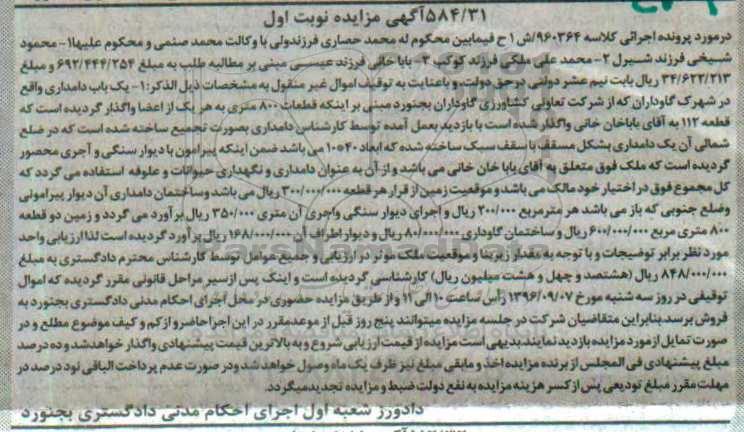 ۵۸۴/۳۱آگهی مزایده نوبت اول
درمورد پرونده اجرائی کلاسه ۹۶۰۳۶۴/ش ۱ ح فیمابین محکوم له محمد حصاری فرزندولی با وکالت محمد صنمی و محکوم علیها۱- محمود
شیخی فرزند شیرل ۲- محمد علی ملکی فرزند کوکب ۳- بابا خانی فرزند عیسی مبنی بر مطالبه طلب به مبلغ ۶۹۲/۴۴۴/۲۵۴ و مبلغ
۳۴/۶۲۲/۲۱۳ ریال بابت نیم عشر دولتی درحق دولت، و باعنایت به توقیف اموال غیر منقول به مشخصات ذیل الذکر:۱- یک باب دامداری واقع
در شهرک گاوداران که از شرکت تعاونی کشاورزی گاوداران بجنورد مبنی بر اینکه قطعات ۸۰۰ متری به هر یک از اعضا واگذار گردیده است که
قطعه ۱۱۲ به آقای باباخان خانی واگذار شده است با بازدید بعمل آمده توسط کارشناس دامداری بصورت تجمیع ساخته شده است که در ضلع
شمالی آن یک دامداری بشکل مسقف با سقف سبک ساخته شده که ابعاد ۴۰*۱۰ می باشد ضمن اینکه پیرامون با دیوار سنگی و آجری محصور
گردیده است که ملک فوق متعلق به آقای بابا خان خانی می باشد و از آن به عنوان دامداری و نگهداری حیوانات و علوفه استفاده می گردد که
کل مجموع فوق در اختیار خود مالک می باشد و موقعیت زمین از قرار هر قطعه ۳۰۰/۰۰۰/۰۰۰ ریال می باشد وساختمان دامداری آن دیوار پیرامونی
وضلع جنوبی که باز می باشد هر مترمربع ۲۰۰/۰۰۰ ریال و اجرای دیوار سنگی واجری آن متری ۳۵۰/۰۰۰ ریال برآورد می گردد و زمین دو قطعه
۸۰۰ متری مربع ۶۰۰/۰۰۰/۰۰۰ ریال و ساختمان گاوداری ۸۰/۰۰۰/۰۰۰ ریال و دیوار اطراف آن ۱۶۸/۰۰۰/۰۰۰ ریال برآورد گردیده است لذا ارزیابی واحد
مورد نظر برابر توضیحات و با توجه به مقدار زیربنا و موقعیت ملک موثر در ارزیابی و جمیع عوامل توسط کارشناس محترم دادگستری به مبلغ
۸۴۸/۰۰۰/۰۰۰ ریال (هشتصد و چهل و هشت میلیون ریال) کارشناسی گردیده است و اینک پس ازسیر مراحل قانونی مقرر گردیده که اموال
توقیفی در روز سه شنبه مورخ ۱۳۹۶/۰۹/۰۷ رأس ساعت ۱۰ الی ۱۱ و از طریق مزایده حضوری در محل اجرای احکام مدنی دادگستری بجنورد به
فروش برسد.بنابراین متقاضیان شرکت در جلسه مزایده میتوانند پنج روز قبل از موعدمقرر در این اجراحاضرو ازکم و کیف موضوع مطلع و در
صورت تمایل ازمورد مزایده بازدید نمایند.بدیهی است مزایده از قیمت ارزیابی شروع و به بالاترین قیمت پیشنهادی واگذار خواهدشد و ده درصد
مبلغ پیشنهادی فی المجلس از برنده مزایده اخذ و مابقی مبلغ نیز ظرف یک ماه وصول خواهد شد و در صورت عدم پرداخت الباقی نود درصد در
مهلت مقرر مبلغ تودیعی پس از کسر هزینه مزایده به نفع دولت ضبط و مزایده تجدیدمیگردد.
دادورز شعبه اول اجرای احکام مدنی دادگستری بجنورد